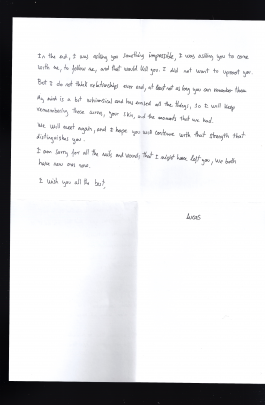 In the end, I was asking you something impossible, I was asking you to come
with me, to follow me, and that would kill you. I did not want to uproot you.
But I do not think relationships ever end, at least not as long you can remember them
My mind is a bit whimsical and has erased all the things, so I will keep
remembering those curves, your skin, and the moments that we had.
We will meet again, and I hope you will continue with that strength that
distinguishes you.
I am sorry for all the nails and wounds that I might have left you, We both
have new ones now.
I wish you all the best,